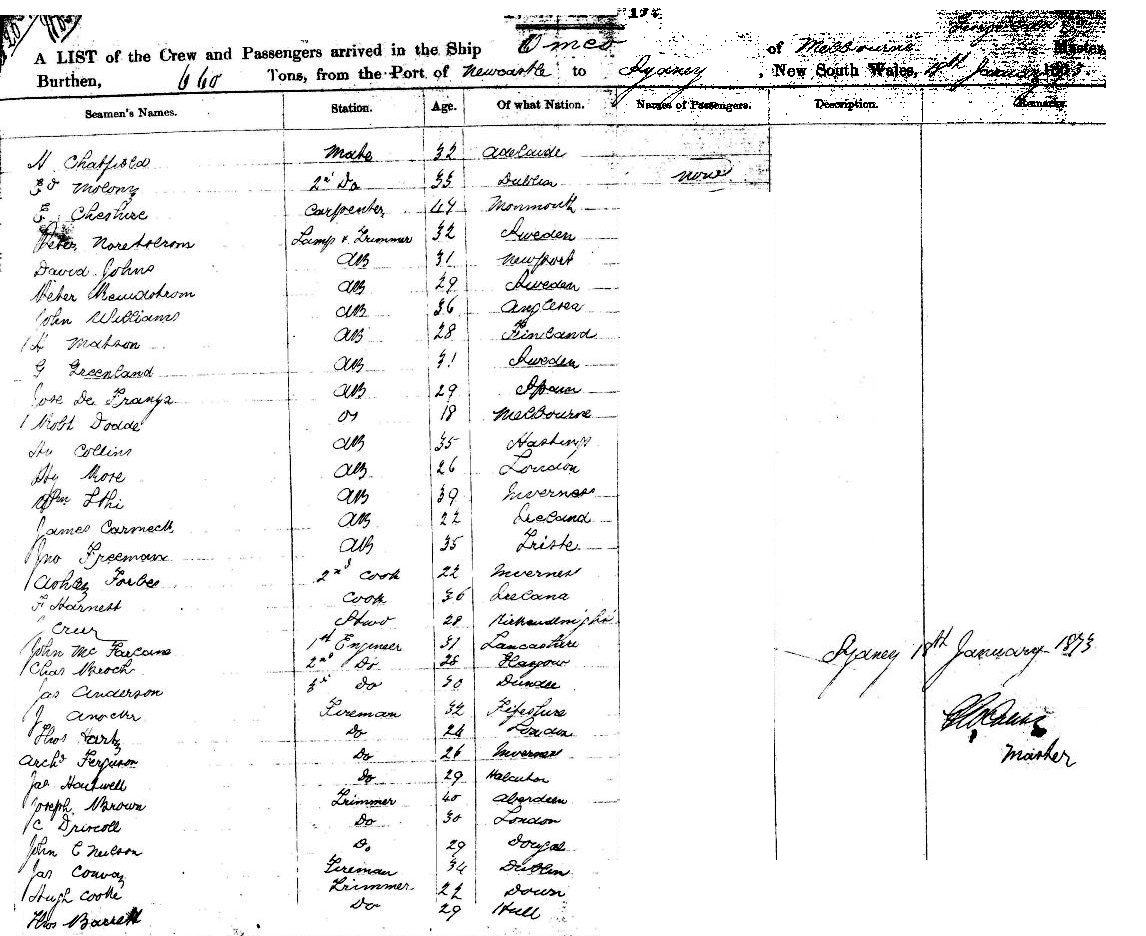 A LIST of the Crew and Passengers arrived in the Ship Omeo of Melbourne Master,
Burthen, 660 Tons, from the Port of Newcastle to Sydney, New South Wales, January 1873
Seamen's Names. Station. Age. Of what Nation. Names of Passengers. Description. Remarks.
H Chatfield Mate 32 Adelaide
Ed Molony 2nd Do 33 Dublin none
E Cheshire Carpenter 44 Monmouth
Peter Lamp & Trimmer 32 Sweden
David Johns AB 31 Newport
Peter AB 29 Sweden
John Williams AB 36 Anglesea
H Matson AB 28 Finland
G Greenland AB 31 Sweden
Jose De Franza AB 29 Spain
Robt Dodde OS 18 Melbourne
Hy Collins AB 35 Hastings
Hy Rose AB 26 London
AB 39 Inverness
James Carmech AB 22 Ireland
Jno Freeman AB 35 Trieste
Forbes 2nd Cook 22 Inverness
F Harnett Cook 36 Ireland
Stwd 28
John McFarlane 1st Engineer 31 Lancashire
Chas Broch 2nd Do 28 Glasgow
Jas Anderson 3rd Do 30 Dundee
J Fireman 32 Fifeshire
Thos Hartz Do 24 London
Archd Ferguson Do 26 Inverness
Jas Hartwell Do 29
Joseph Brown Trimmer 40 Aberdeen
C Driscoll Do 30 London
John C Neilson Do 29 Douglas
Jas Conway Fireman 34 Dublin
Hugh Cooke Trimmer 22 Down
Thos Barrett Do 29 Hull
Sydney 18th January 1873
Master